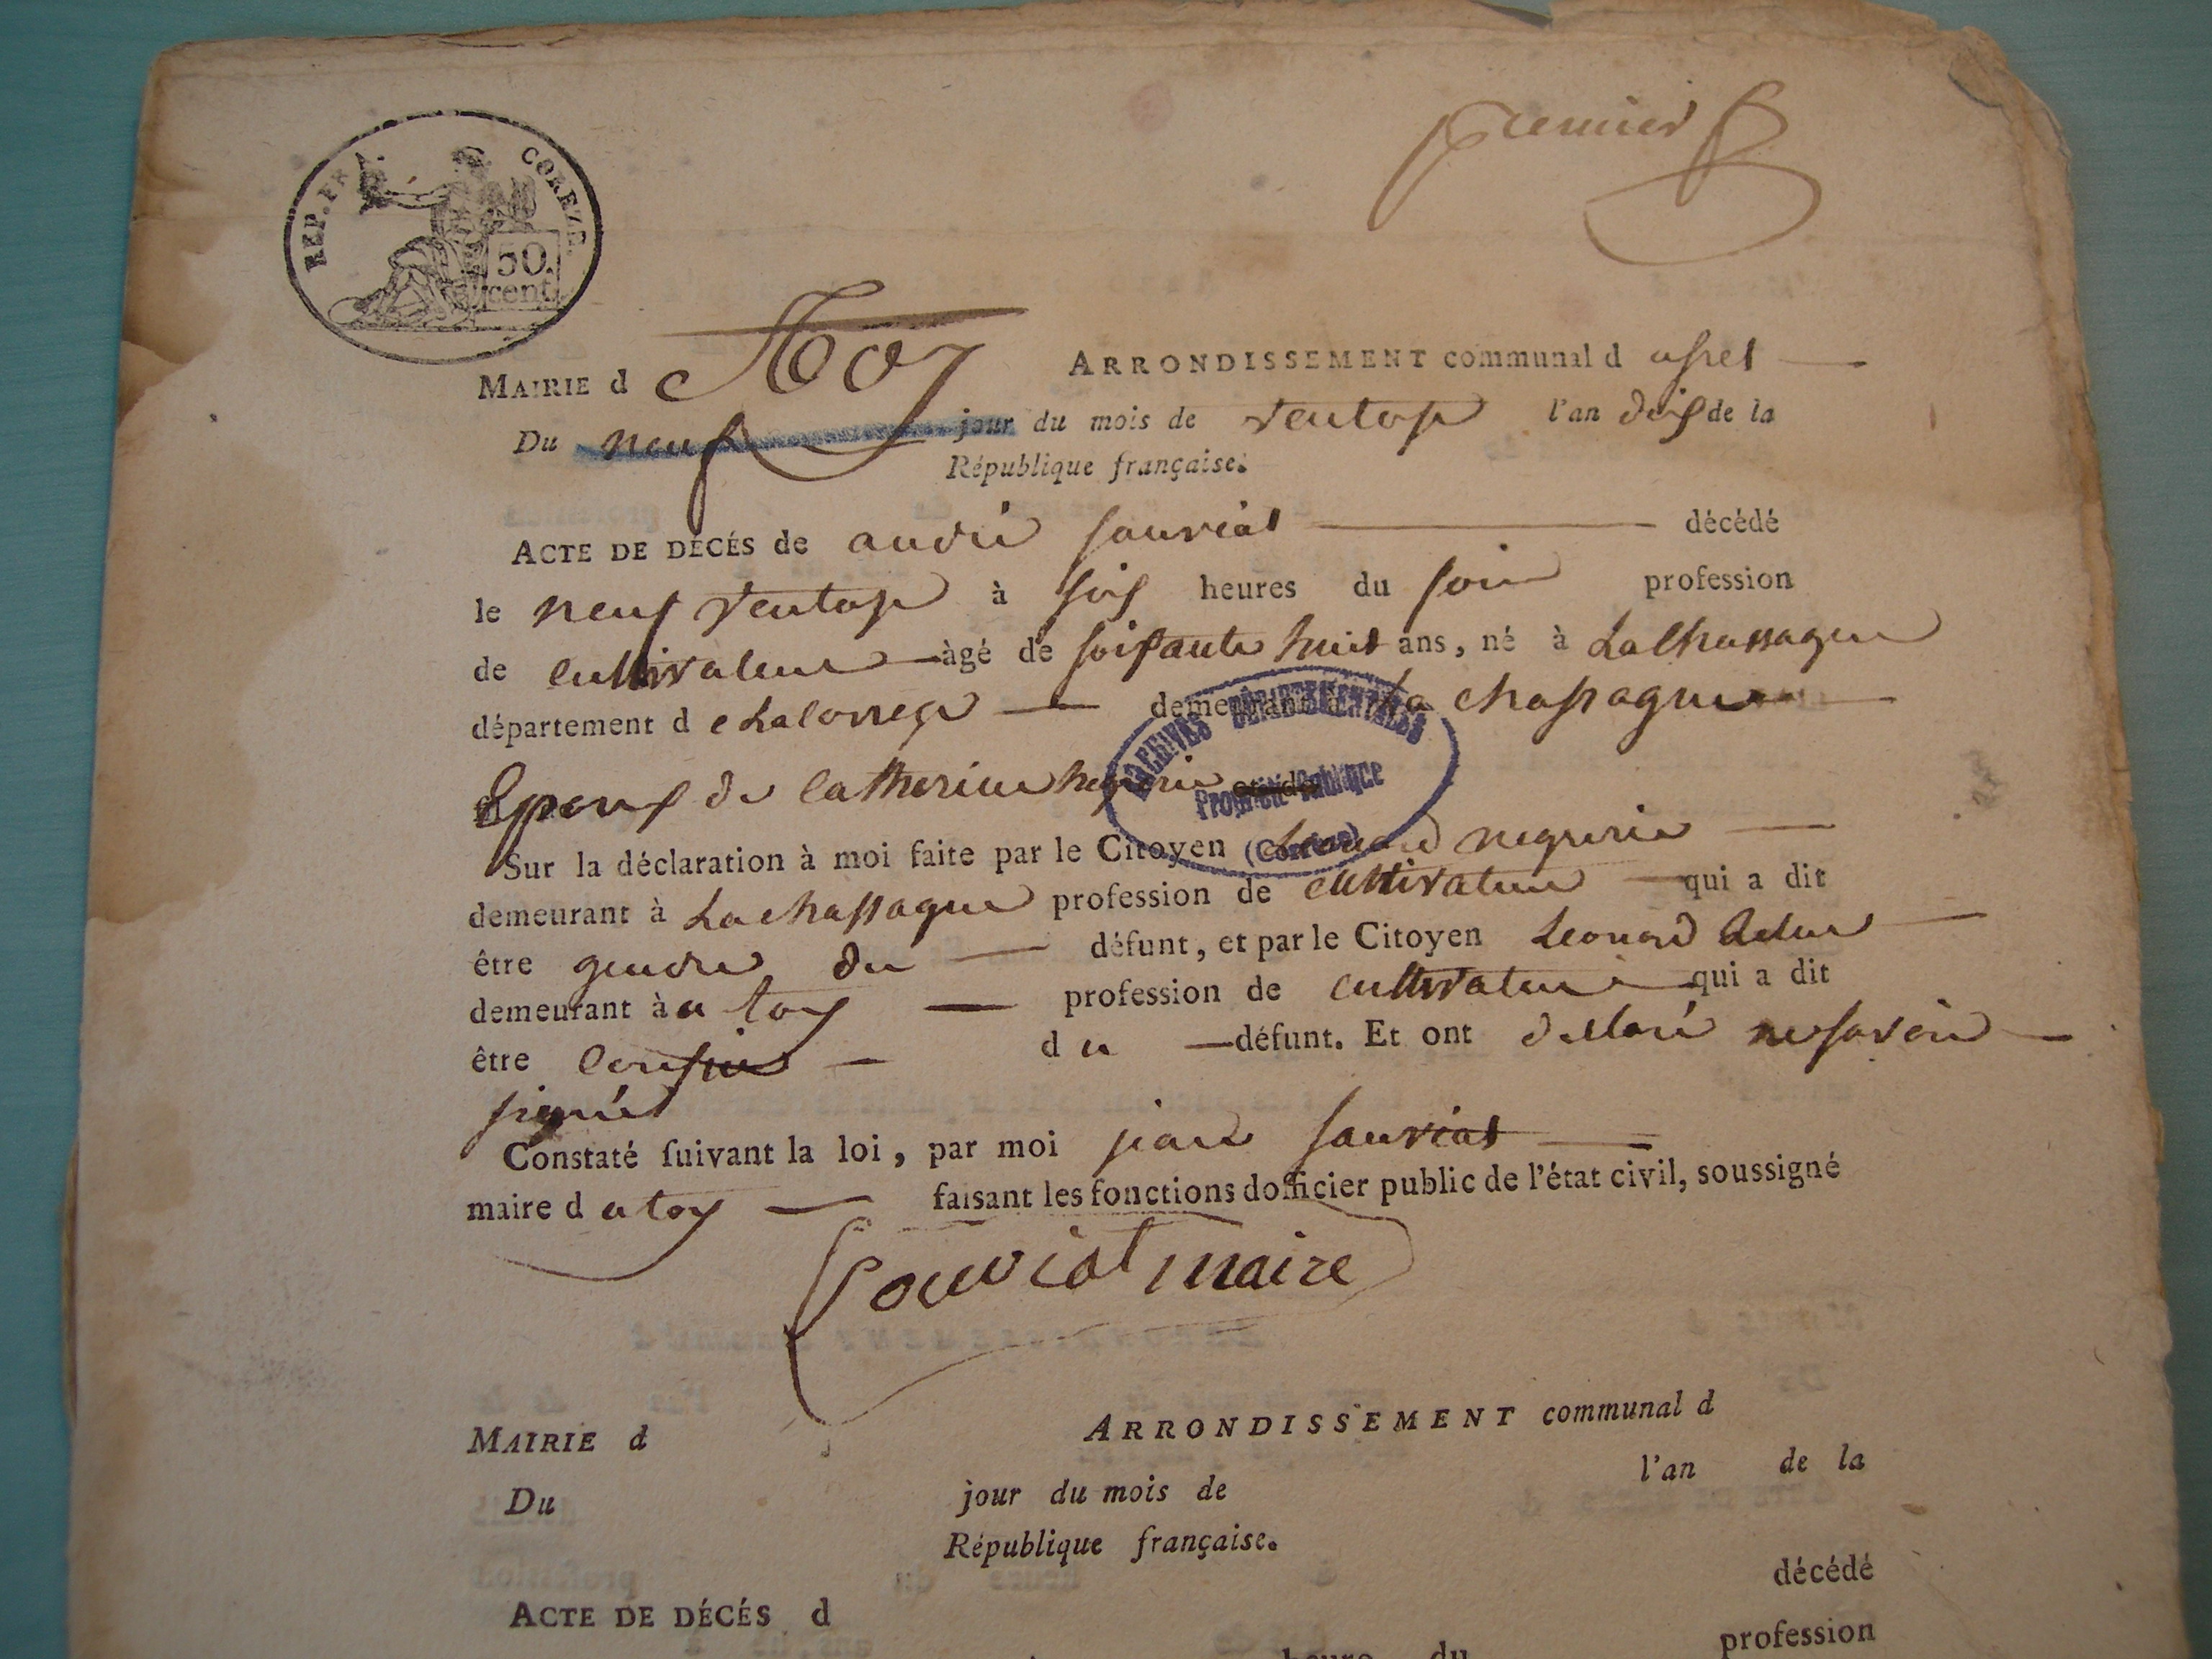 premier
REP. FR. CORREZE.
50.
cent.
MAIRIE d ARRONDISSEMENT communal d ussel
Du neuf jour du mois de ventose l'an dix de la
République française.
ACTE DE DÉCÉS de andré sauviat décédé
le neuf ventose à six heures du soir profession
de cultivateur âgé de soixante huit ans, né à Lachassagne
département d e Lacorreze demeurant à La chassagne
Epoux de Catherine
ARCHIVES DÉPARTEMENTALES
Propriété Publique
(Corrèze)
Sur la déclaration à moi faite par le Citoyen Leonard negrerie
demeurant à La chassagne profession de cultivateur qui a dit
être gendre du défunt, et par le Citoyen Leonard
demeurant à a toy profession de cultivateur qui a dit
être d u défunt. Et ont declaré ne savoir
signer
Constaté suivant la loi, par moi jean sauviat
maire d a toy faisant les fonctions dofficier public de l'état civil, soussigné
Sauviat maire
MAIRIE d ARRONDISSEMENT communal d
Du jour du mois de l'an de la
République française.
ACTE DE DÉCÉS d décédé
heure du profession